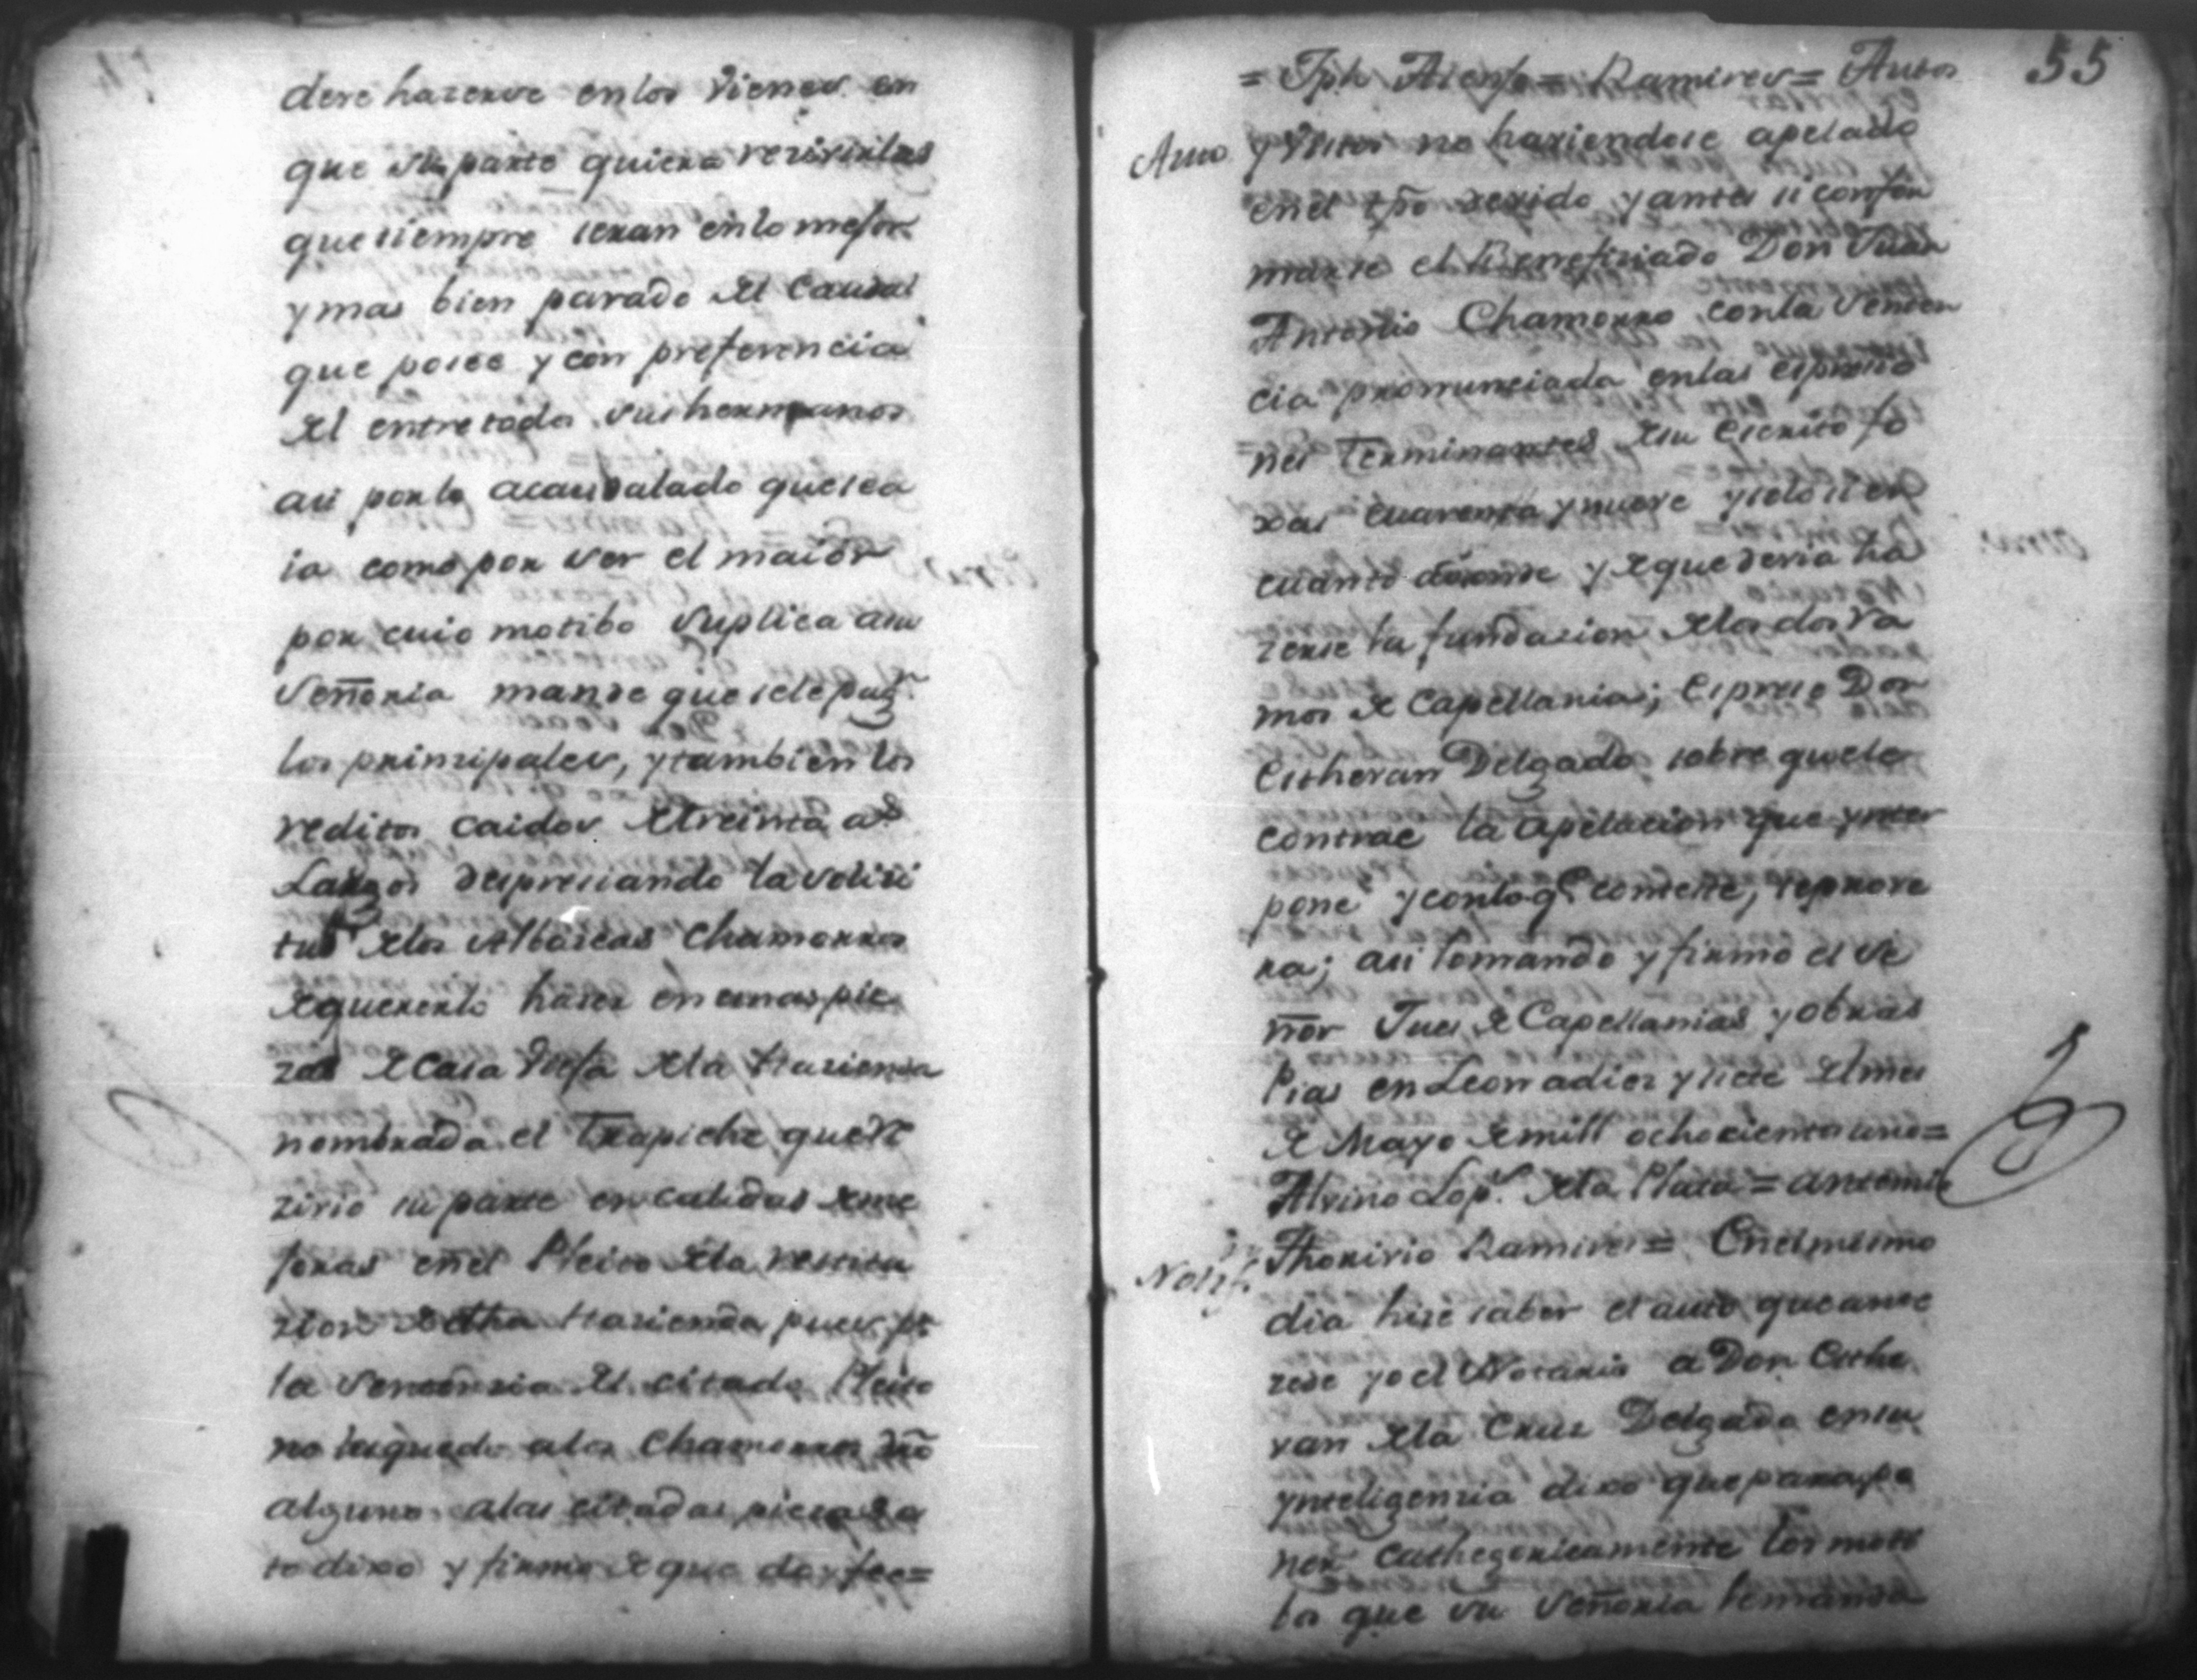 deve hazerse en los Vienes en
que su parte quiera rezivirlas
que siempre seran en lo mejor
y mas bien parado del Caudal
que posee y con preferencia
del entre todos sus hermanos
asi por lo acaudalado que sea
ia como por ser el maior
por cuio motibo Suplica a su
Señoria mande que se le pag.n
los prinzipales, y tambien los
reditos caidos de treinta a.s
Largos despreciando la solizi
tud de los Albaceas Chamorros
de quererlo hazer en unas pie
zas de Casa Viefa de la Hazienda
nombrada el Trapiche que
zivio su parte en calidad de me
joras en el Pleito de la restitu
zion de dha Hazienda pues p.r
la Sentenzia del citado Pleito
no les quedo a los Chamorros dro
alguno a las citadas piezas
to dixo y firmo de que doy fee=
55
= Jph = Ramires= Autos
Auto y Vistos no haviendose apelado
en el tpo devido y antes si confor
marse el Beneficiado Don Juan
Antonio Chamorro con la Senten
cia pronunciada en las espresio
nes terminantes de su Escrito fo
xas cuarenta y nueve y solo si en
cuanto donde y de que devia ha
zerse la fundazion de los dos Ra
mos de Capellania; Exprese Don
Esthevan Delgado sobre que le
contrae la apelacion que ynter
pone y con lo q.e conteste, se provee
ra; asi lo mando y firmo el Se
ñor Jues de Capellanias y obras
Pias en Leon a diez y siete del mes
de Mayo de mill ochocientos uno=
Alvino Lop.s de la Plata = Antemi=
Thorivio Ramires = En el mismo
Notif. dia hize saber el auto que ante
zede yo el Notario a Don Esthe
van de la Cruz Delgado en su
ynteligenzia dixo que para po
ner cathegoricamente los moti
bos que su Señoria le manda